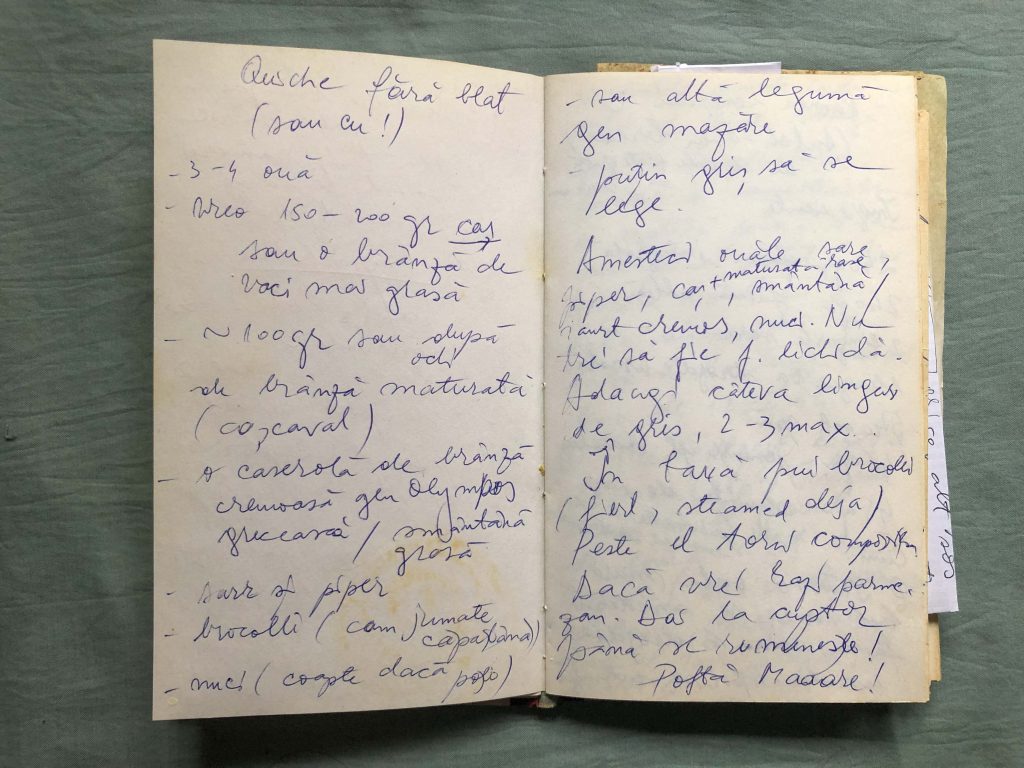 Quiche fără blat
(sau cu!)
- 3-4 ouă
- Vreo 150-200 gr caș
sau o brânză de
vaci mai grasă
- ~ 100 gr sau după
ochi
de brânză maturată
(cașcaval)
- o caserolă de brânză
cremoasă gen Olympos
grecească / smântână
grasă
- sare și piper
- brocolli (cam jumate
căpățână)
- nuci (coapte dacă poți)
- sau altă legumă
gen mazăre
- puțin griș să se
lege.
Amesteci ouăle, sare,
piper, caș + maturata rasă, smântână /
iaurt cremos, nuci. Nu
tre să fie f. lichidă.
Adaugi câteva linguri
de griș, 2-3 max..
În tavă pui brocolli
(fiert, steamed deja)
Peste el torni compoziția
Dacă vrei razi parme-
zan. Dai la cuptor
până se rumenește!
Poftă Maaare!